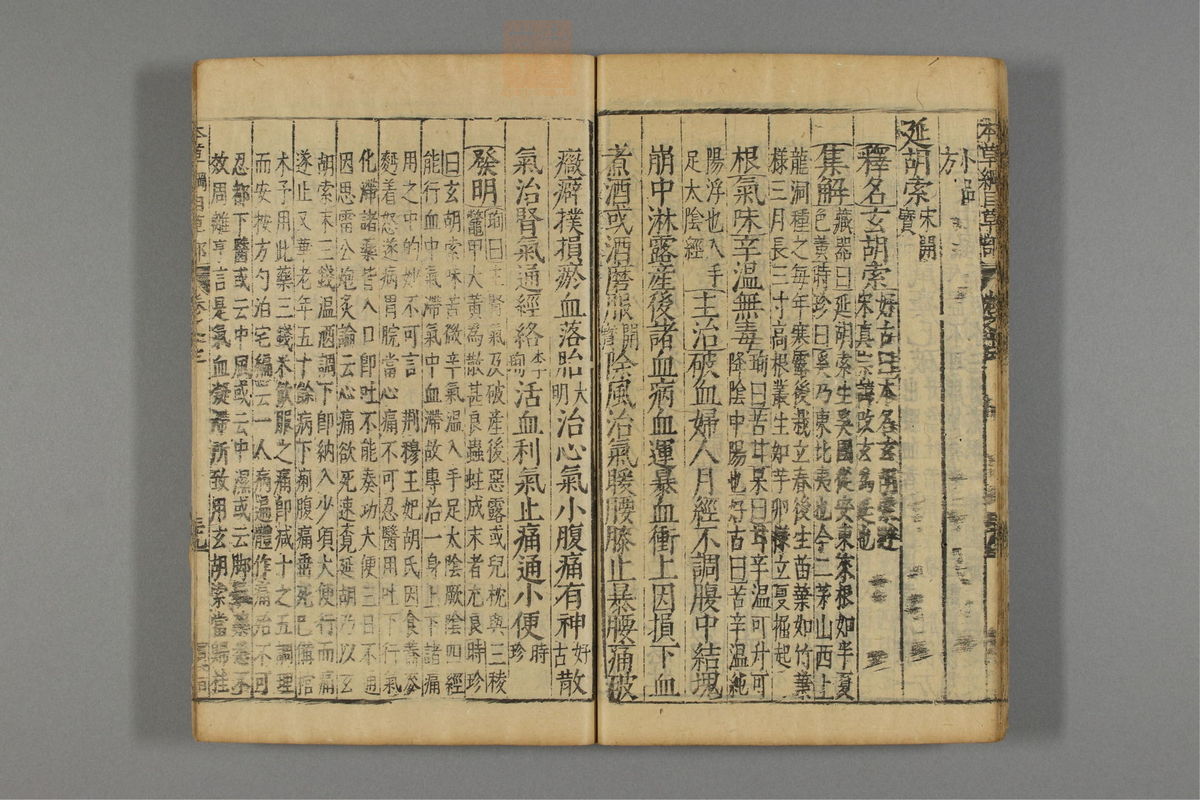 本草綱目草部
小品
方
延胡索宋開
寶
釋名玄胡索好古曰本名玄胡索避
宋真宗諱改玄為延也
集解藏器曰延胡索生奚國從安東來根如半夏
色黃時珍曰奚乃東北夷也今二茅山西上
龍洞種之每年寒露後栽立春後生苗葉如竹葉
樣三月長三寸高根叢生如芋卵樣立夏掘起
根氣味辛溫無毒珣曰苦甘杲曰甘辛溫可升可
降陰中陽也好古曰苦辛溫純
陽浮也入手
足太陰經
主治破血婦人月經不調腹中結塊
崩中淋露産後諸血病血運暴血衝上因損下血
煮酒或酒磨服開
寶
除風治氣暖腰膝止暴腰痛破
癥癖撲損瘀血落胎大
明
治心氣小腹痛有神好
古
散
氣治腎氣通經絡李
珣
活血利氣止痛通小便時
珍
發明珣曰主腎氣及破産後惡露或兒枕與三稜
鼈甲大黃為散甚良蟲蛀成末者尤良時珍
曰玄胡索味苦微辛氣溫入手足太陰厥陰四經
能行血中氣滯氣中血滯故專治一身上下諸痛
用之中的妙不可言荆穆王妃胡氏因食蕎麥
麪着怒遂病胃脘當心痛不可忍醫用吐下行氣
化滯諸藥皆入口卽吐不能奏功大便三日不通
因思雷公炮炙論云心痛欲死速覓延胡乃以玄
胡索末三錢溫酒調下卽納入少頃大便行而痛
遂止又華老年五十餘病下痢腹痛垂死已備棺
木予用此藥三錢米飲服之痛卽減十之五調理
而安按方勺泊宅編云一人病遍體作痛殆不可
忍都下醫或云中風或云中濕或云脚氣藥悉不
效周離亨言是氣血凝滯所致用玄胡索當歸桂
本草綱目草部